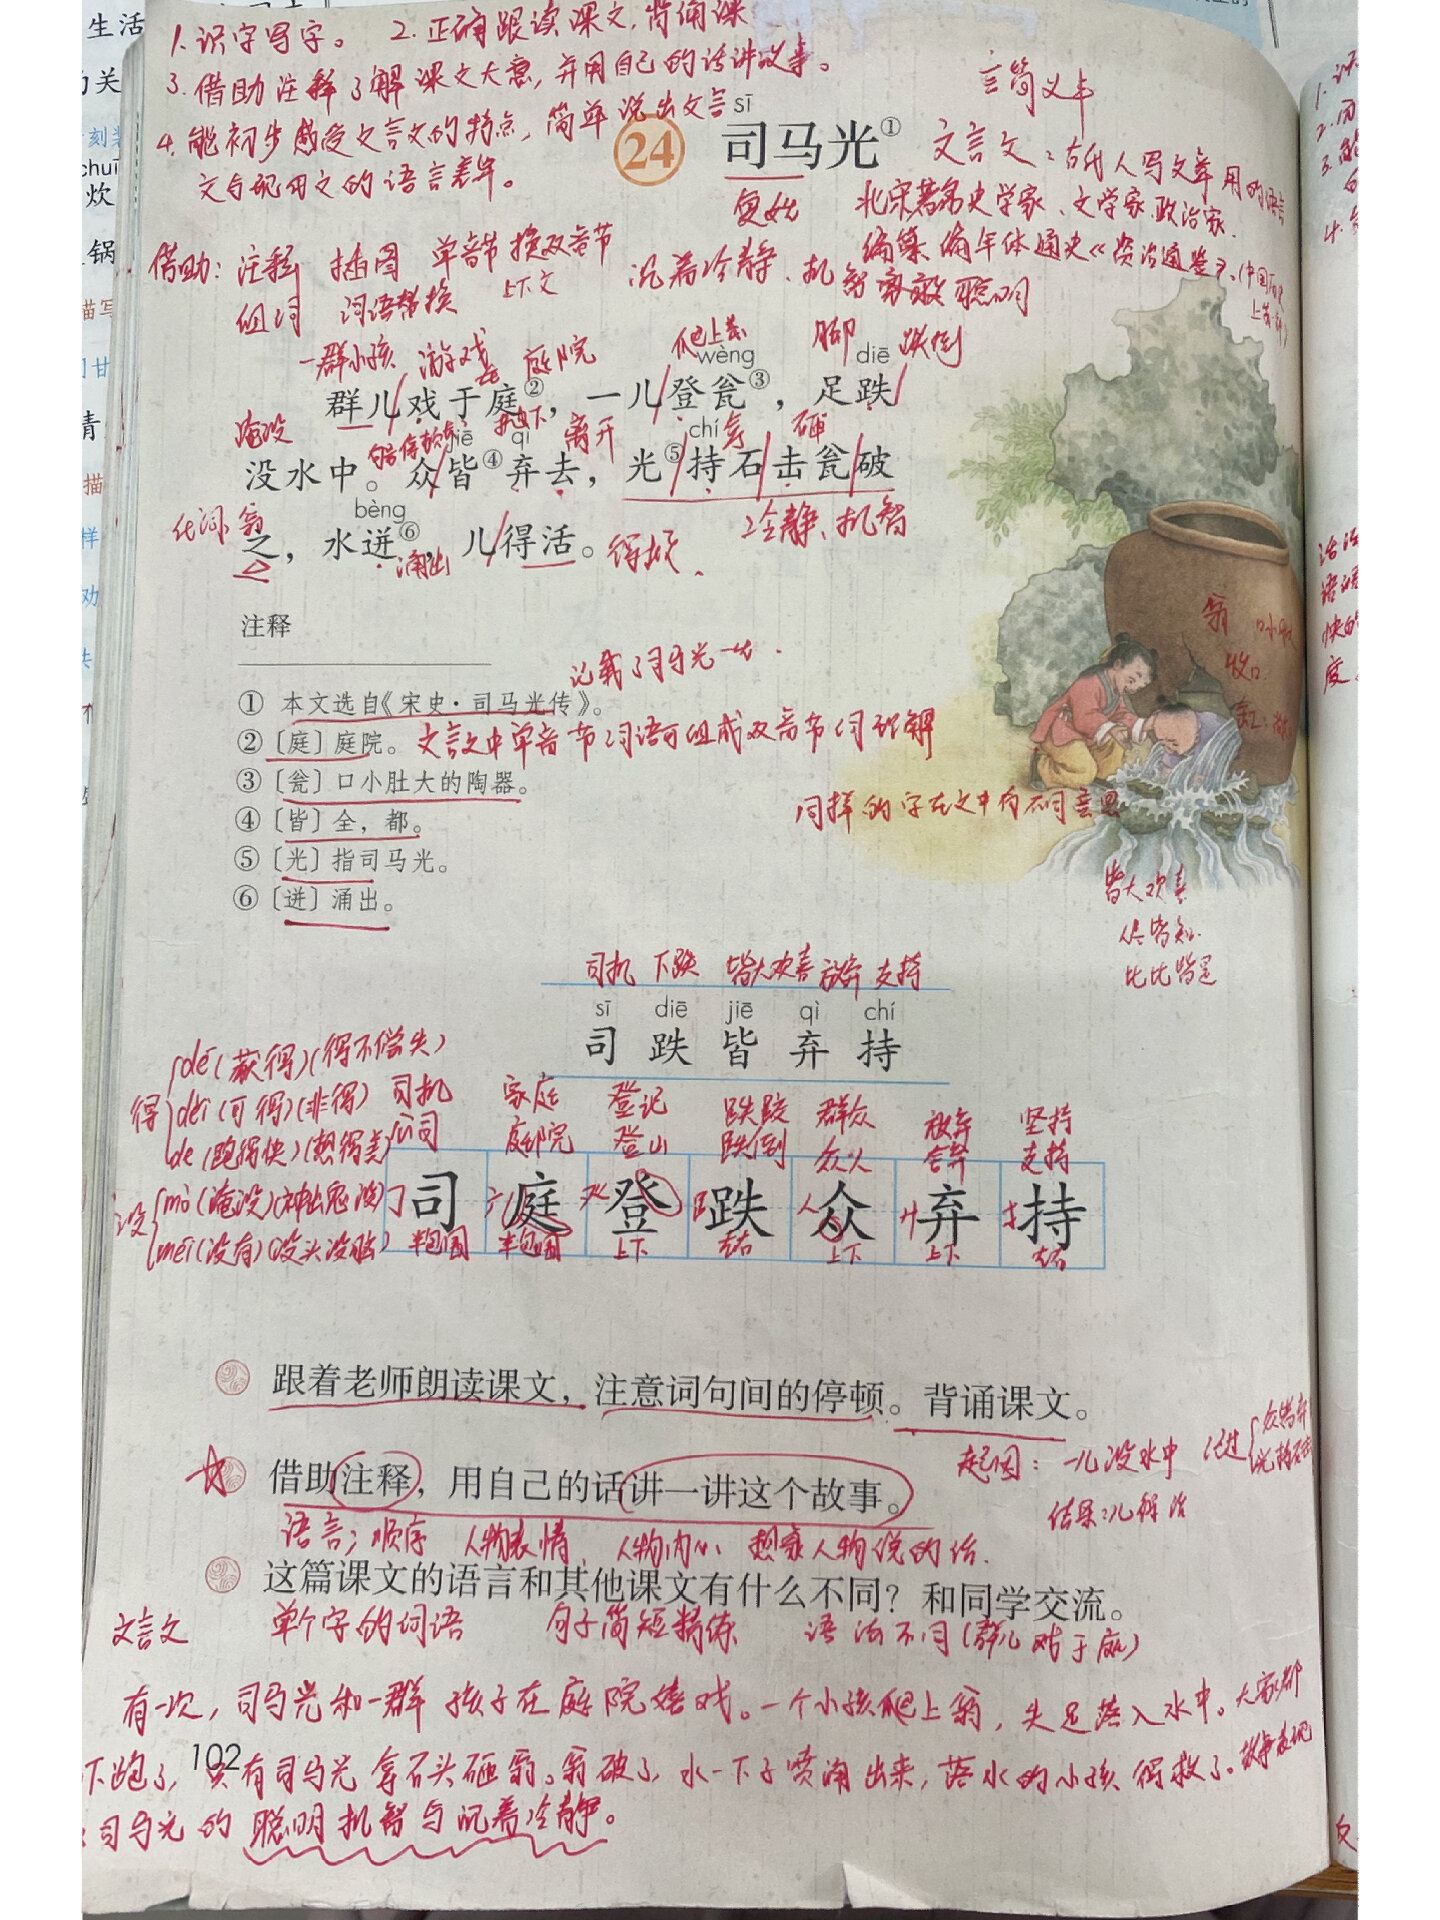 1. 识字写字。 2. 正确跟读课文，背诵课
3. 借助注释了解课文大意，并用自己的话讲故事。
4. 能初步感受文言文的特点，简单说出文言
文与现代文的语言差异。
言简义丰
sī
24 司马光①
复姓
文言文：古代人写文章用的语言
北宋著名史学家、文学家、政治家.
编集编年体通史《资治通鉴》。
借助：注释 插图 单音节换双音节
组词 词语替换 上下文
沉着冷静、机智 聪明
一群小孩 游戏 在 庭院 爬上 wèng 脚 diē 跌倒
群儿戏于庭②，一儿登瓮③，足跌
淹没 jiē qì 离开 chí 拿 砸
没水中。众皆④弃去，光⑤持石击瓮破
代词 瓮 bèng 冷静、机智
之，水迸⑥，儿得活。得救
涌出
注释
记载了司马光一生.
① 本文选自《宋史·司马光传》。
② 〔庭〕庭院。 文言文中单音节词语可组成双音节词理解
③ 〔瓮〕口小肚大的陶器。
同样的字在文中有不同意思
④ 〔皆〕全，都。
⑤ 〔光〕指司马光。
⑥ 〔迸〕涌出。
皆大欢喜
人尽皆知
比比皆是
司机 下跌 皆大欢喜 放弃 支持
sī diē jiē qì chí
司 跌 皆 弃 持
得 dé（获得）（得不偿失）
děi（可得）（非得）
de（跑得快）（想得美）
没 mò（淹没）（神出鬼没）
méi（没有）（没头没脑）
司机 家庭 登记 跌跤 群众 放弃 坚持
公司 庭院 登山 跌倒 众人 舍弃 支持
司 庭 登 跌 众 弃 持
半包围 半包围 上下 左右 上下 上下 左右
跟着老师朗读课文，注意词句间的停顿。背诵课文。
起因：一儿没水中 经过 众皆弃 光持石击
借助注释，用自己的话讲一讲这个故事。
结果：儿得活
语言；顺序 人物表情 人物内心 想象人物说的话.
这篇课文的语言和其他课文有什么不同？和同学交流。
文言文 单个字的词语 句子简短精练 语法不同（群儿戏于庭）
有一次，司马光和一群孩子在庭院嬉戏。一个小孩爬上瓮，失足落入水中。大家都
下跑了，只有司马光拿石头砸瓮。瓮破了，水一下子喷涌出来，落水的小孩得救了。故事表现
102
司马光的聪明机智与沉着冷静。